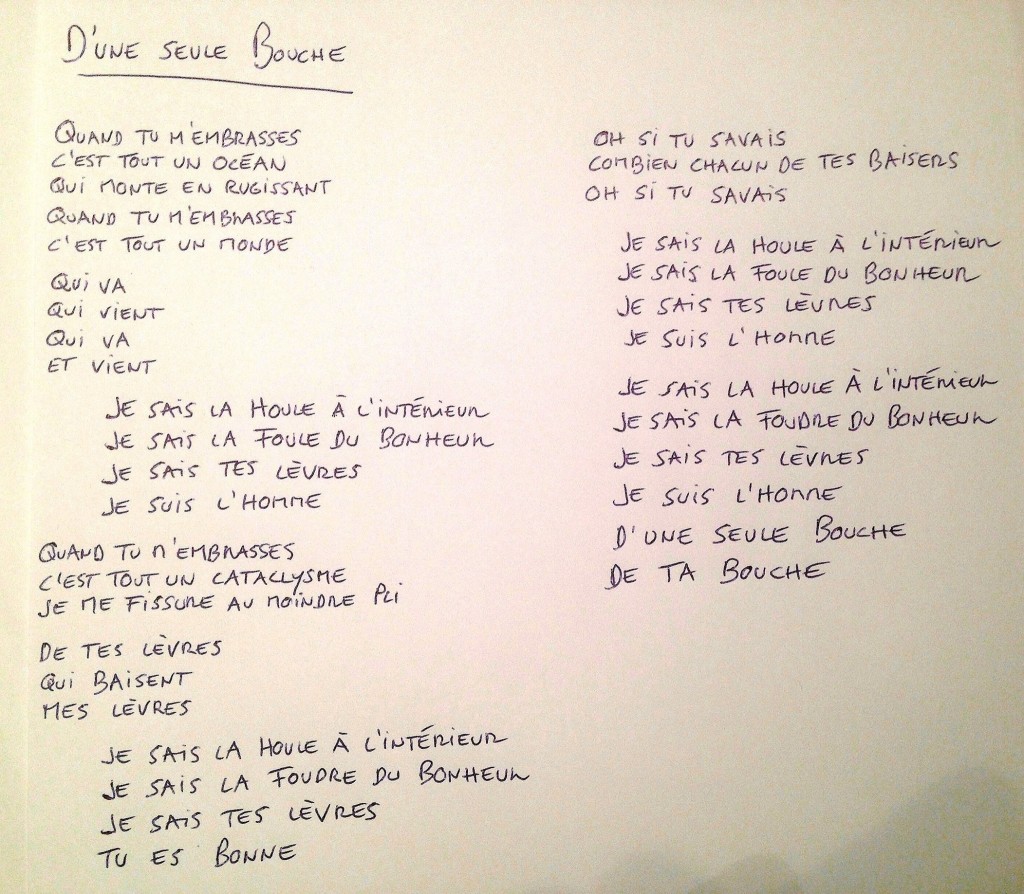 D'UNE SEULE BOUCHE
QUAND TU M'EMBRASSES
C'EST TOUT UN OCÉAN
QUI MONTE EN RUGISSANT
QUAND TU M'EMBRASSES
C'EST TOUT UN MONDE
QUI VA
QUI VIENT
QUI VA
ET VIENT
JE SAIS LA HOULE À L'INTÉRIEUR
JE SAIS LA FOULE DU BONHEUR
JE SAIS TES LÈVRES
JE SUIS L'HOMME
QUAND TU M'EMBRASSES
C'EST TOUT UN CATACLYSME
JE ME FISSURE AU MOINDRE PLI
DE TES LÈVRES
QUI BAISENT
MES LÈVRES
JE SAIS LA HOULE À L'INTÉRIEUR
JE SAIS LA FOUDRE DU BONHEUR
JE SAIS TES LÈVRES
TU ES BONNE
OH SI TU SAVAIS
COMBIEN CHACUN DE TES BAISERS
OH SI TU SAVAIS
JE SAIS LA HOULE À L'INTÉRIEUR
JE SAIS LA FOULE DU BONHEUR
JE SAIS TES LÈVRES
JE SUIS L'HOMME
JE SAIS LA HOULE À L'INTÉRIEUR
JE SAIS LA FOUDRE DU BONHEUR
JE SAIS TES LÈVRES
JE SUIS L'HOMME
D'UNE SEULE BOUCHE
DE TA BOUCHE